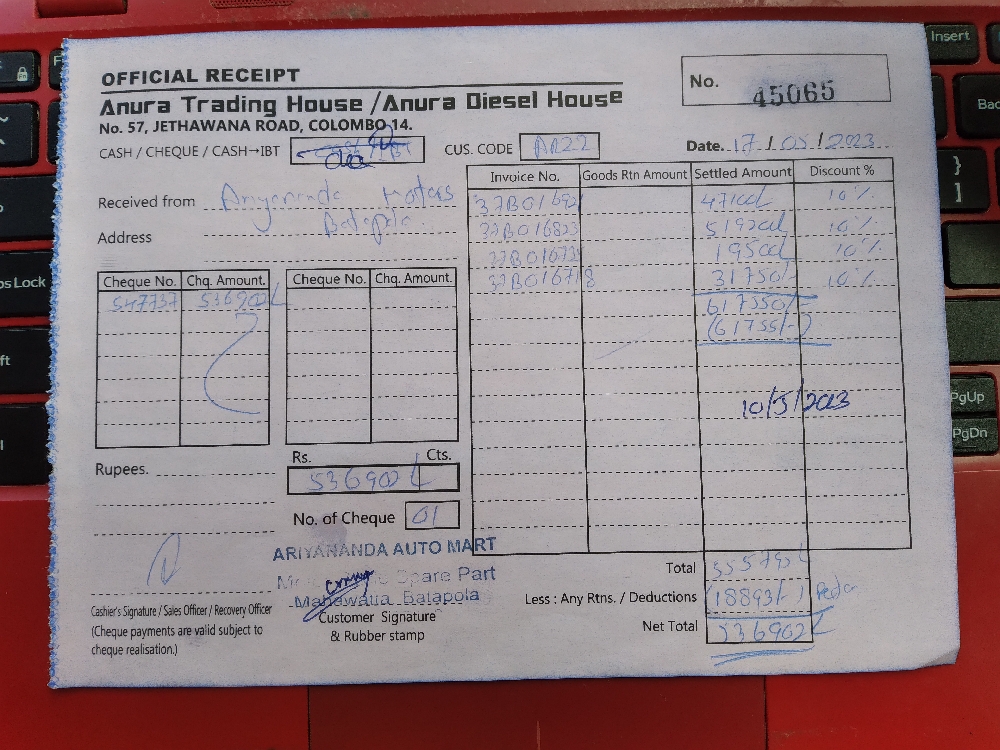 OFFICIAL RECEIPT
Anura Trading House /Anura Diesel House
No. 57, JETHAWANA ROAD, COLOMBO 14.
No. 45065
CASH / CHEQUE / CASH→IBT
CUS. CODE AA22
Date. 17 / 05 / 2023
Received from Ariyananda Motors
Address Batapola
Invoice No. Goods Rtn Amount Settled Amount Discount %
37B01692 10%
37B016823 10%
10%
37B016718 31750/- 10%
617550/-
(61755/-)
10/5/2023
Cheque No. Chq. Amount. Cheque No. Chq. Amount.
547737 536902
Rupees.
Rs. Cts.
536902
No. of Cheque 01
ARIYANANDA AUTO MART
Spare Part
Batapola
Cashier's Signature / Sales Officer / Recovery Officer
(Cheque payments are valid subject to
cheque realisation.)
Customer Signature
& Rubber stamp
Total 555795
Less : Any Rtns. / Deductions (18893/-)
Net Total 536902